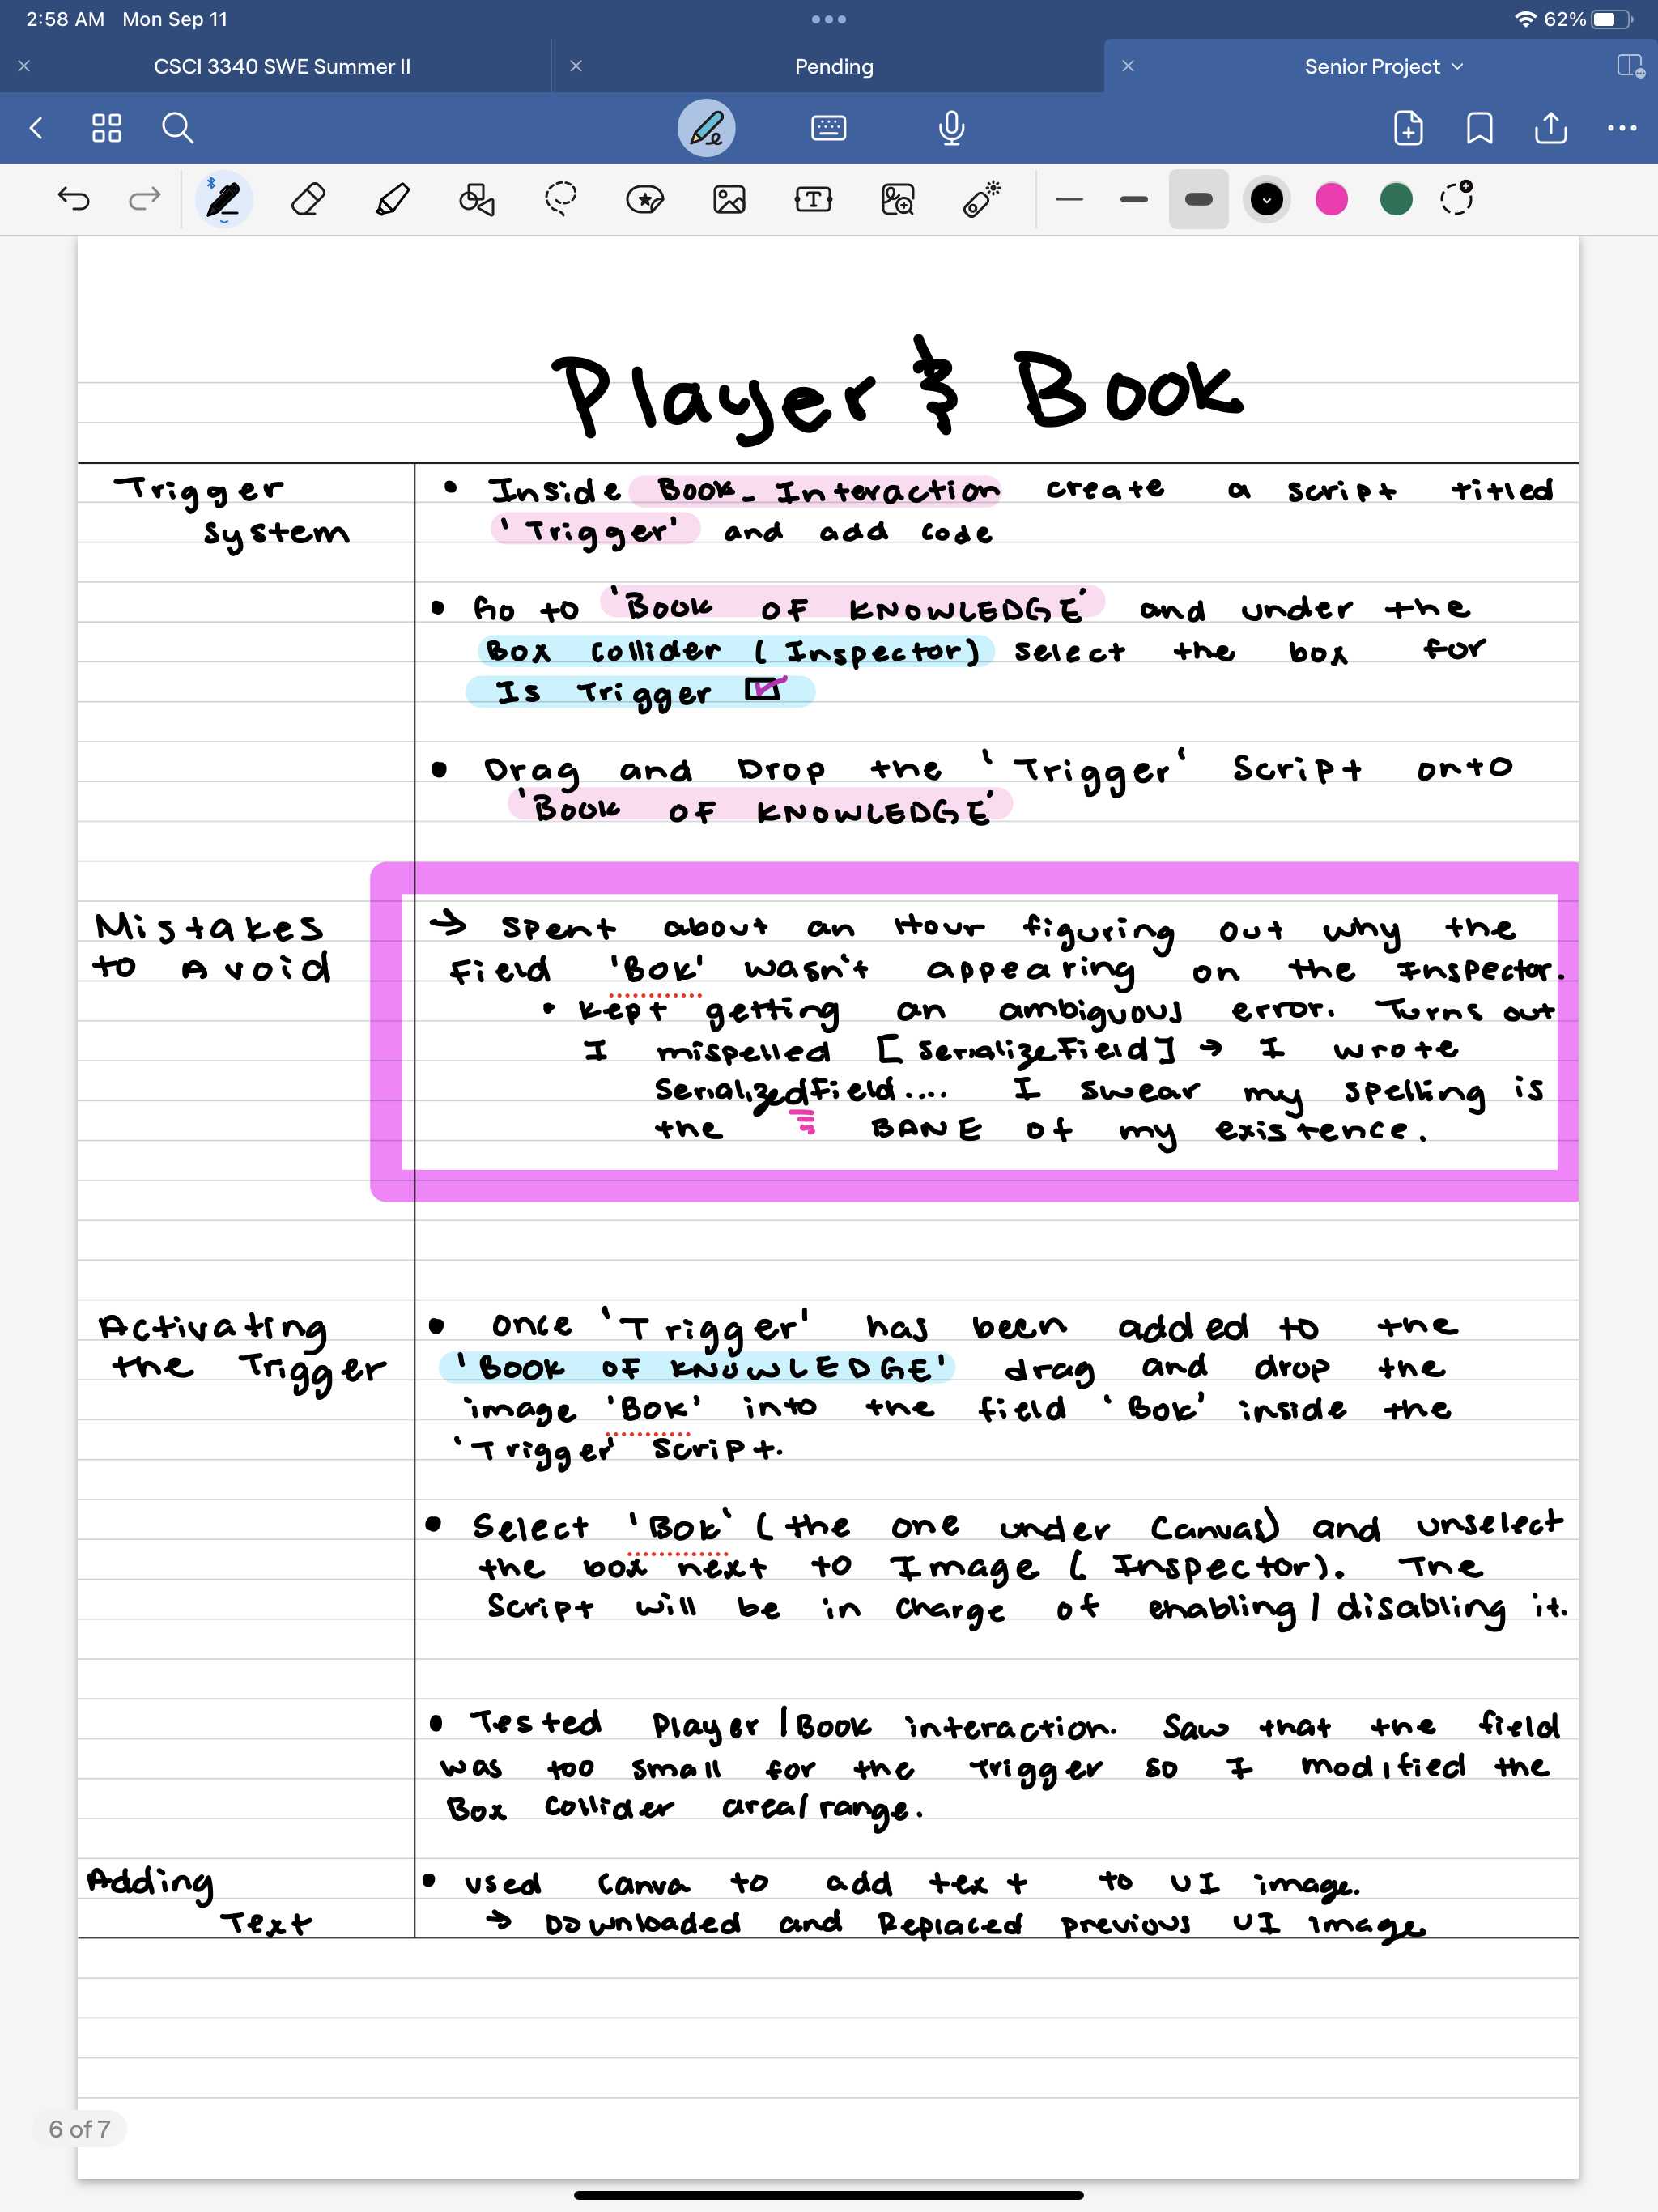 2:58 AM Mon Sep 11
62%
CSCI 3340 SWE Summer II
Pending
Senior Project
Player & Book
Trigger
System
• Inside Book_Interaction create a script titled
'Trigger' and add code
• Go to 'Book OF KNOWLEDGE' and under the
Box Collider (Inspector) select the box for
Is Trigger ☑
• Drag and Drop the 'Trigger' Script onto
'Book OF KNOWLEDGE'
Mistakes
to Avoid
→ Spent about an Hour figuring out why the
field 'Bok' wasn't appearing on the Inspector.
• Kept getting an ambiguous error. Turns out
I mispelled [SerializeField] → I wrote
SerializedField.... I swear my spelling is
the BANE of my existence.
Activating
the Trigger
• Once 'Trigger' has been added to the
'BOOK OF KNOWLEDGE' drag and drop the
image 'Bok' into the field 'Bok' inside the
'Trigger' Script.
• Select 'Bok' (the one under Canvas) and unselect
the box next to Image (Inspector). The
Script will be in charge of enabling/disabling it.
• Tested Player/Book interaction. Saw that the field
was too small for the Trigger so I modified the
Box Collider area/range.
Adding
Text
• used Canva to add text to UI image.
→ Downloaded and Replaced previous UI image
6 of 7